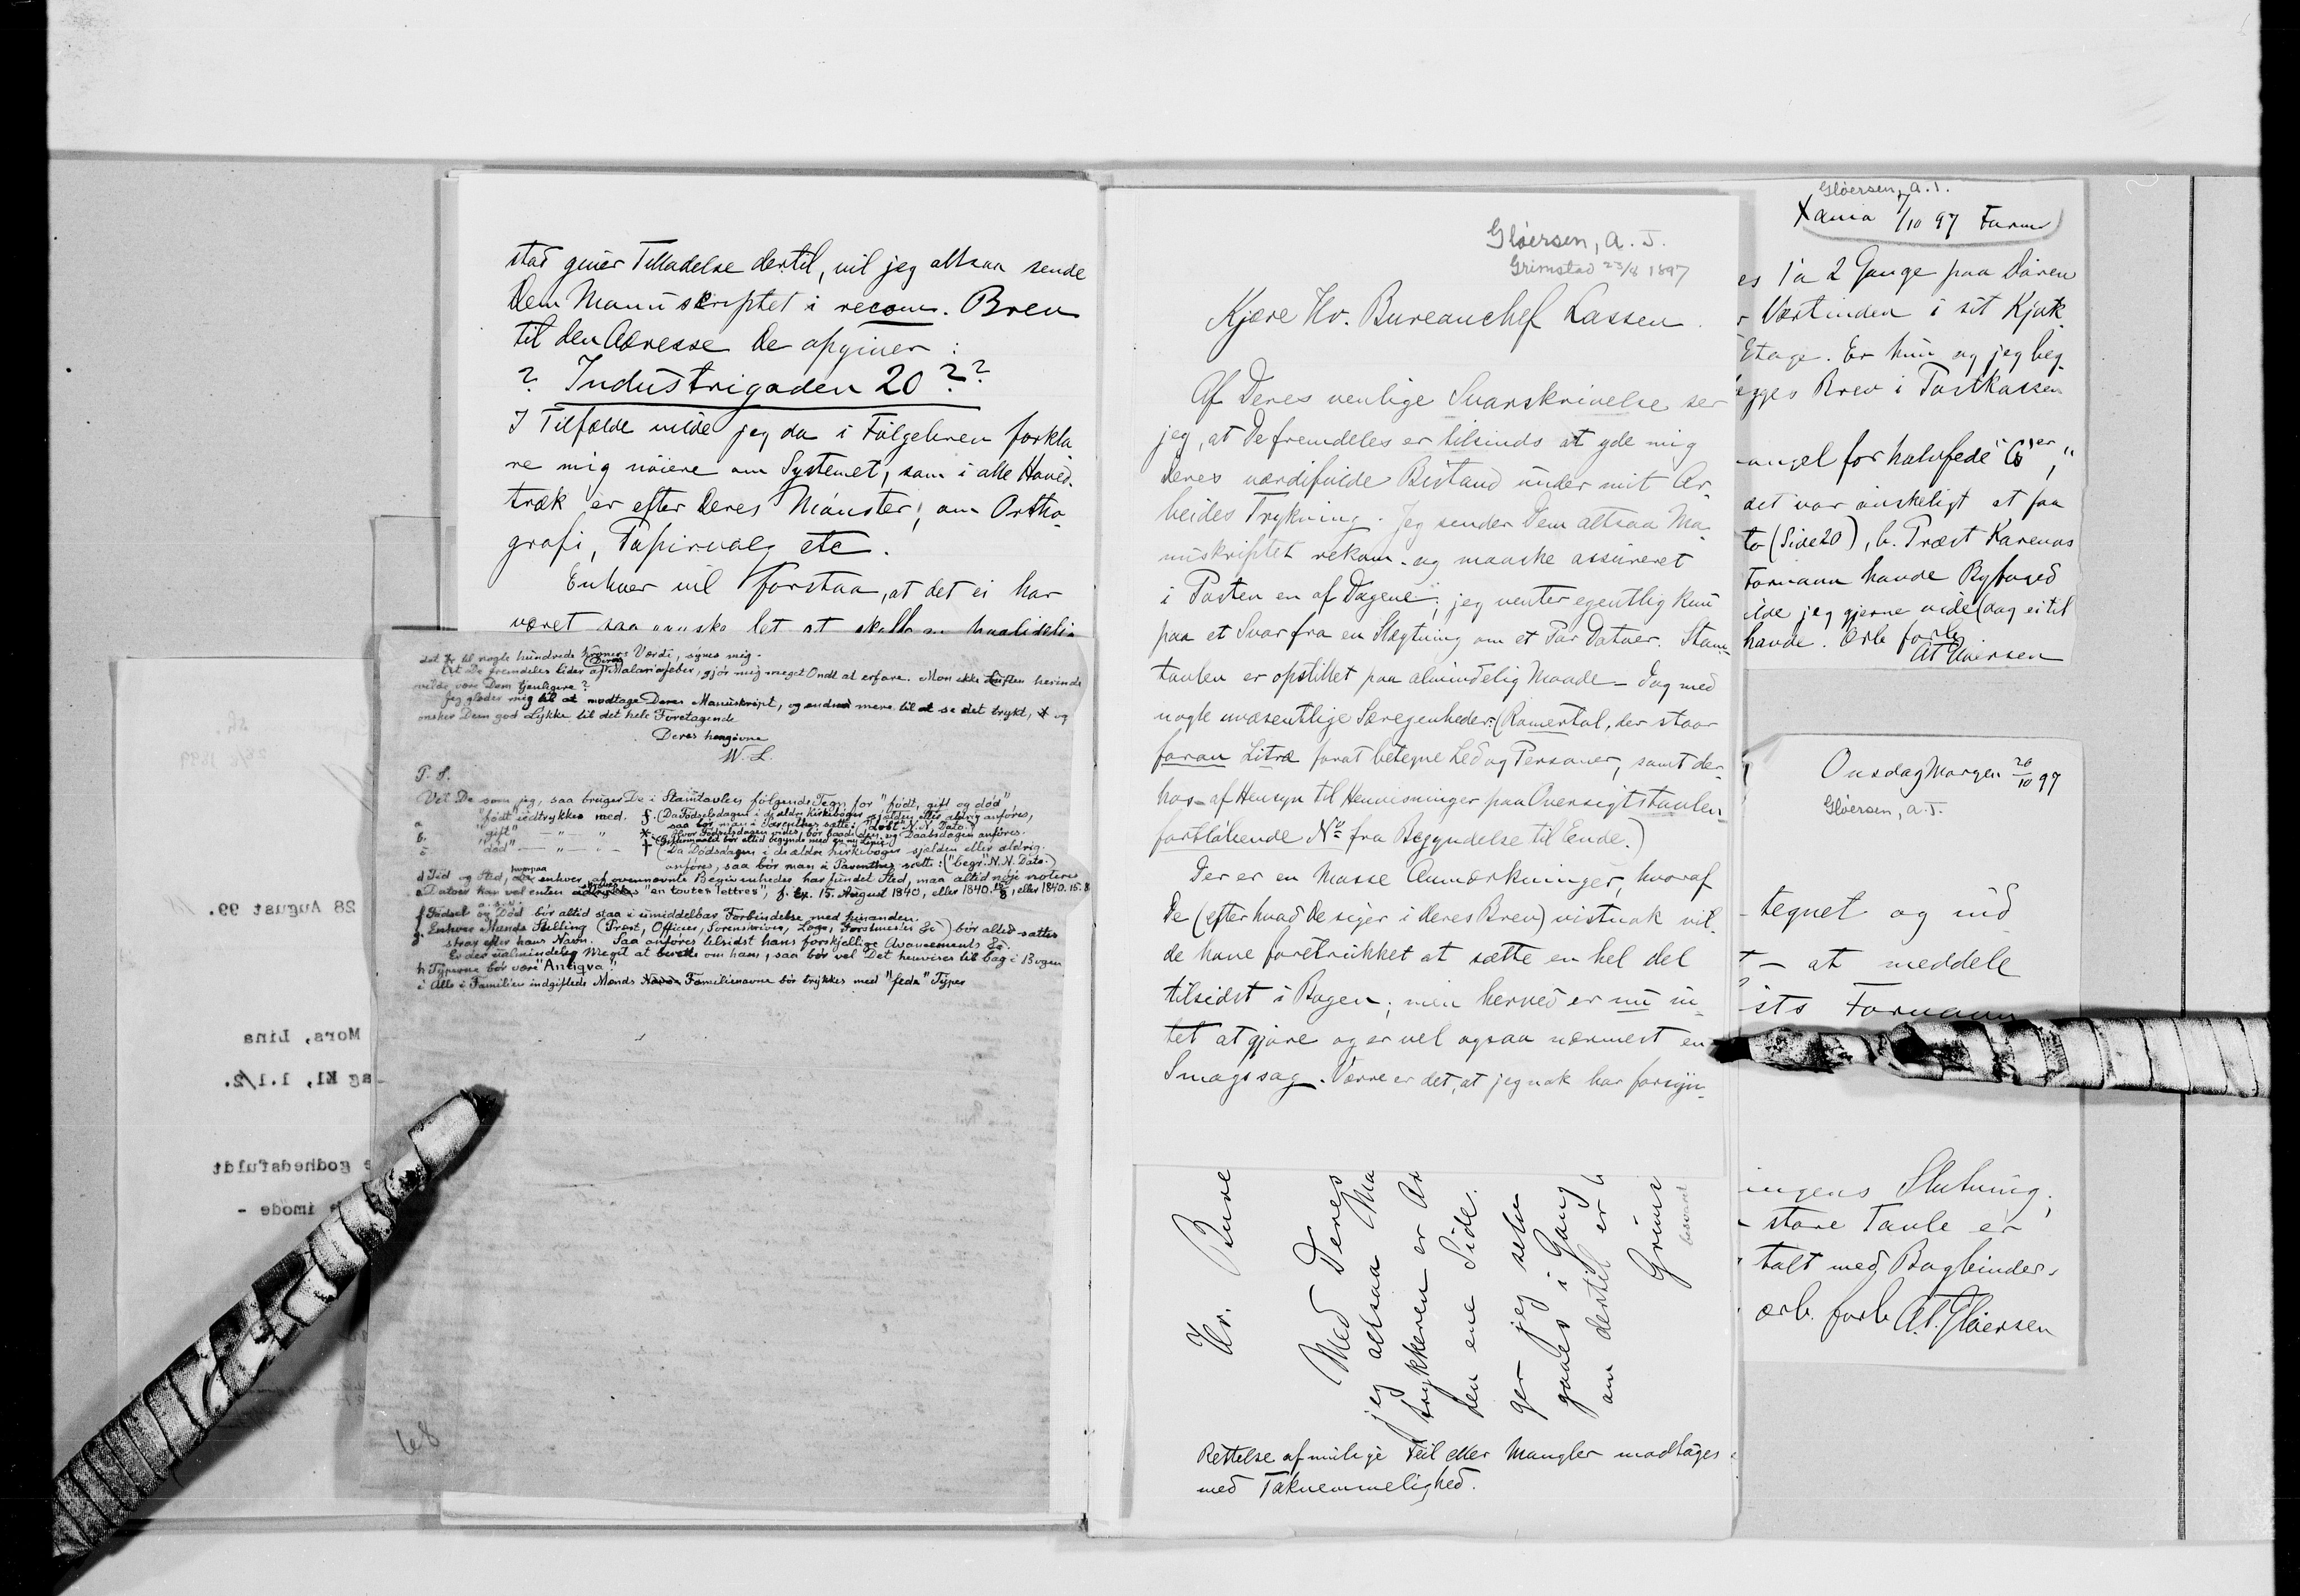 stad giver Tilladelse dertil, vil jeg altsaa sende
Dem Manuskriptet i recom. Brev
til den Adresse De opgiver :
? Industrigaden 20 ? ?
I Tilfælde vilde jeg da i Følgebrev forkla
re mig nöiere om Systemet, som i alle Hoved-
træk er efter Deres Mönster, om Ortho-
grafi, Papirvalg etc.
Enhver vil forstaa, at det ei har
været saa ganske let at skaffe
det til nogle hundrede Kroners Værdi, synes mig.
At De fremdeles lider af Deres Malariafeber, gjör mig meget Ondt at erfare. Mon ikke Luften herinde
vilde være Dem tjenligere?
Jeg glæder mig til at modtage Deres Manuskript, og endnu mere til at se det trykt, og
ønsker Dem god Lykke til det hele Foretagende
Deres hengivne
W. L.
P. S.
Vil De som jeg, saa bruger De i Stamtavlen følgende Tegn for "født, gift og död"
a "født" udtrykkes med. f. (Da Fødselsdagen i de ældre Kirkebøger sjelden eller aldrig anføres,
saa bør man i Parenthes sætte: "døbt" N. N. Dato.)
Hvor Fødselsdagen vides, bør baade den og Daabsdagen anføres.
b. "gift" — " — " — *
c "død" — " — " — † (Da Dødsdagen i de ældre Kirkebøger sjelden eller aldrig
anføres, saa bør man i Parenthes sætte: ("begr." N. N. Dato.)
d Tid og Sted, hvorpaa enhver af ovennævnte Begivenheder har fundet Sted, maa altid nøje noteres
e Datoer kan vel enten skrives "en toutes lettres", f. Ex. 15. August 1840, eller 1840. 15/8, eller 1840. 15. 8
f Fødsel og Død bör altid staa i umiddelbar Forbindelse med hinanden.
g. Enhver Mands Stilling (Præst, Officer, Sorenskriver, Læge, Forstmester &c) bør altid sættes
strax efter hans Navn. Saa anføres tilsidst hans forskjellige Avancements &c.
Er der ualmindelig Meget at berette om ham, saa bør vel Det henvises til bag i Bogen
h Typerne bør være "Antiqva".
i Alle i Familien indgiftede Mænds Familienavne bör trykkes med "fede" Typer
68
28 August 99.
Mors, Lina
ag Kl. 1.1/2.
godhedsfuldt
imöde -
Glöersen, A. J.
Grimstad 23/8 1897
Kjære Hr. Bureauchef Lassen.
Af Deres venlige Svarskrivelse ser
jeg, at De fremdeles er tilsinds at yde mig
Deres værdifulde Bistand under mit Ar-
beides Trykning. Jeg sender Dem altsaa Ma-
nuskriptet rekom. og maaske assureret
i Posten en af Dagene; jeg venter egentlig kun
paa et Svar fra en Slægtning om et Par Datoer. Stam-
tavlen er opstillet paa almindelig Maade — dog med
nogle uvæsentlige Særegenheder: (Romertal, der staar
foran Litra forat betegne Led og Personer, samt der-
hos – af Hensyn til Henvisninger paa Oversigtstavlen –
fortløbende No fra Begyndelse til Ende.)
Der er en Masse Anmærkninger, hvoraf
De (efter hvad De siger i Deres Brev) vistnok vil-
de have foretrukket at sætte en hel del
tilsidst i Bogen; men herved er nu in-
tet at gjøre og er vel ogsaa nærmest en
Smagssag. Værre er det, at jeg nok har forsyn-
Hr. Bure
Med Deres
jeg altsaa Ma
trykkeren er Ar
den ene Side.
ger jeg selv
gaaes i Gang
om dertil er
Grims
besvaret
Rettelse af mulige Feil eller Mangler modtages
med Taknemmelighed.
Glöersen, A. J.
Xania 7/10 97 Form
es 1 à 2 Gange paa Dören
Værtinden i sit Kjøk
Etage. Er hun og jeg beg
ægges Brev i Postkassen
angel for halvfede
det var önskeligt at faa
to (Side 20), h. Præst Karenus
Formann havde Byfoged
ilde jeg gjerne vide (dog ei til
havde. Ærb. forb.
A T Glöersen
Onsdag Morgen 20/10 97
Glöersen, A. J.
tegnet og ud
– at meddele
sts Formann
ingens Slutning;
store Tavle er
talt med Bogbinder.
ærb. forb. A. T. Glöersen